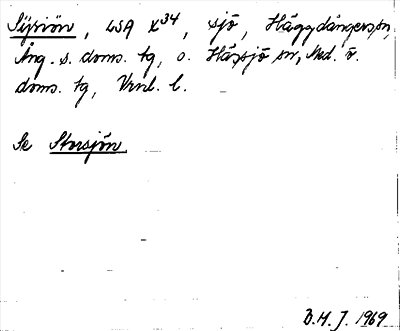 LSA X34, sjö, Häggdångers sn,
Ång. s. doms. tg, o. Hässjö sn, Med. v.
doms. tg, Vrnl. l.
Se Storsjön
B.H.J. 1969